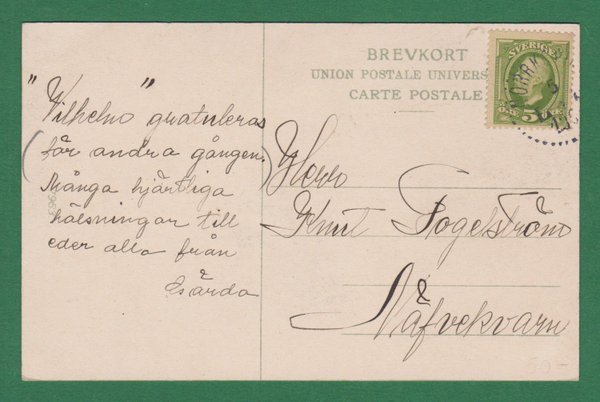 BREVKORT
UNION POSTALE UNIVERS
CARTE POSTALE
SVERIGE
5
"Wilhelm" gratuleras
(för andra gången.)
Många hjärtliga
hälsningar till
eder alla från
Gärda
Herr
Knut Fogelström
Näfvekvarn
50-